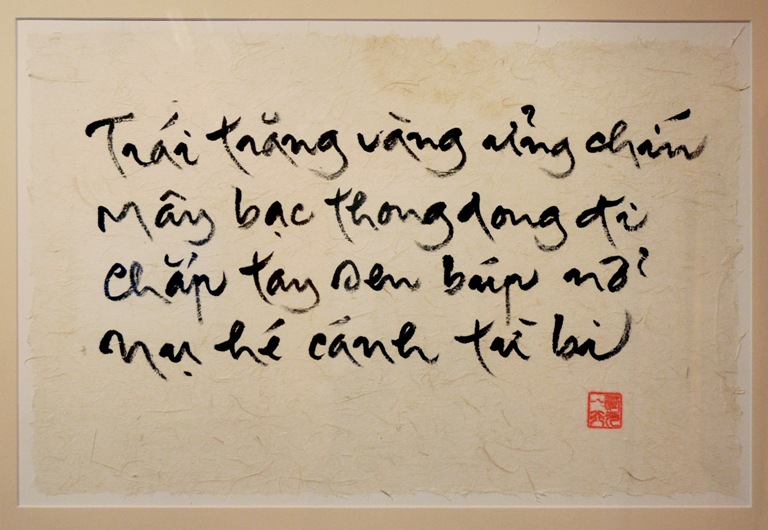 Trái trăng vàng ửng chín
Mây bạc thong dong đi
Chắp tay sen búp nở
Nụ hé cánh từ bi